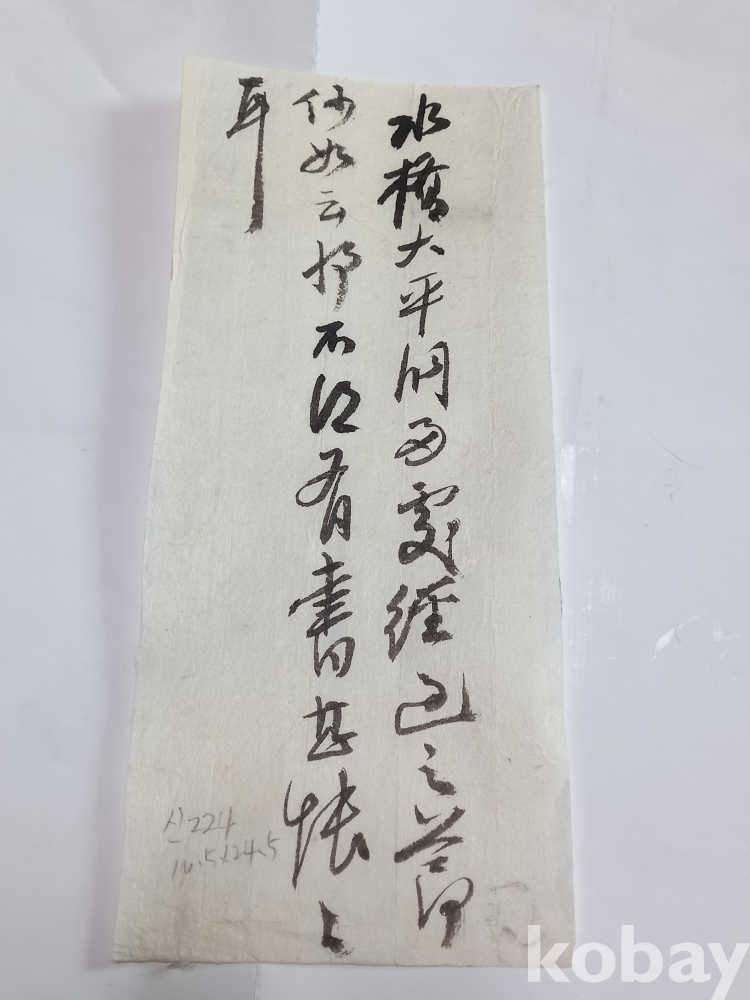 水橋大平開母處經過之節
何如云抑不得有書甚悵〻
耳
신224
10.5x24.5
kobay